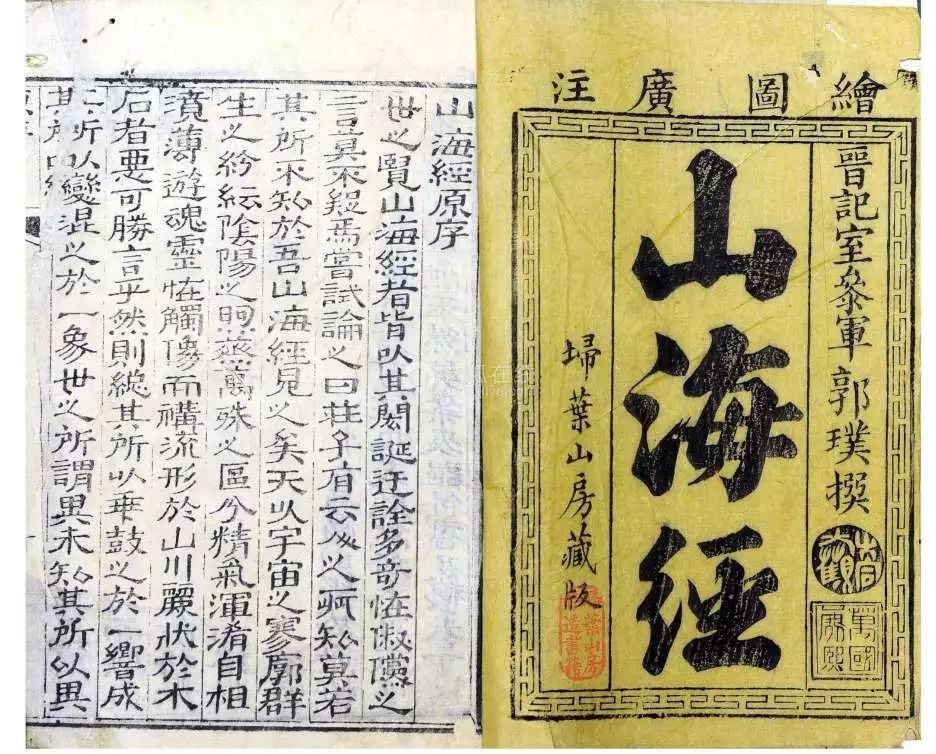 繪圖廣注
晉記室參軍郭璞撰
山海經
掃葉山房藏版
山海經原序
世之覽山海經者皆以其閎誕迂誇多奇怪俶儻之
言莫不疑焉嘗試論之曰莊子有云人之所知莫若
其所不知於吾山海經見之矣夫以宇宙之寥廓群
生之紛紜陰陽之煦蒸萬殊之區分精氣渾淆自相
濆薄遊魂靈怪觸像而構流形於山川麗狀於木
石者惡可勝言乎然則總其所以乖鼓之於一響成
其所以變混之於一象世之所謂異未知其所以異